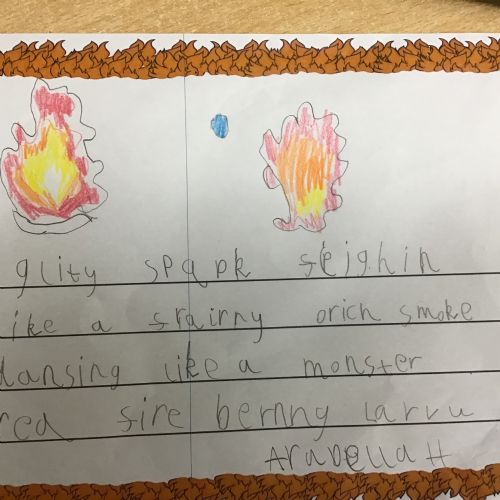 glity spark feighin
like a frainny orich smoke
dansing like a monster
red fire bernng larvu
Arabella H